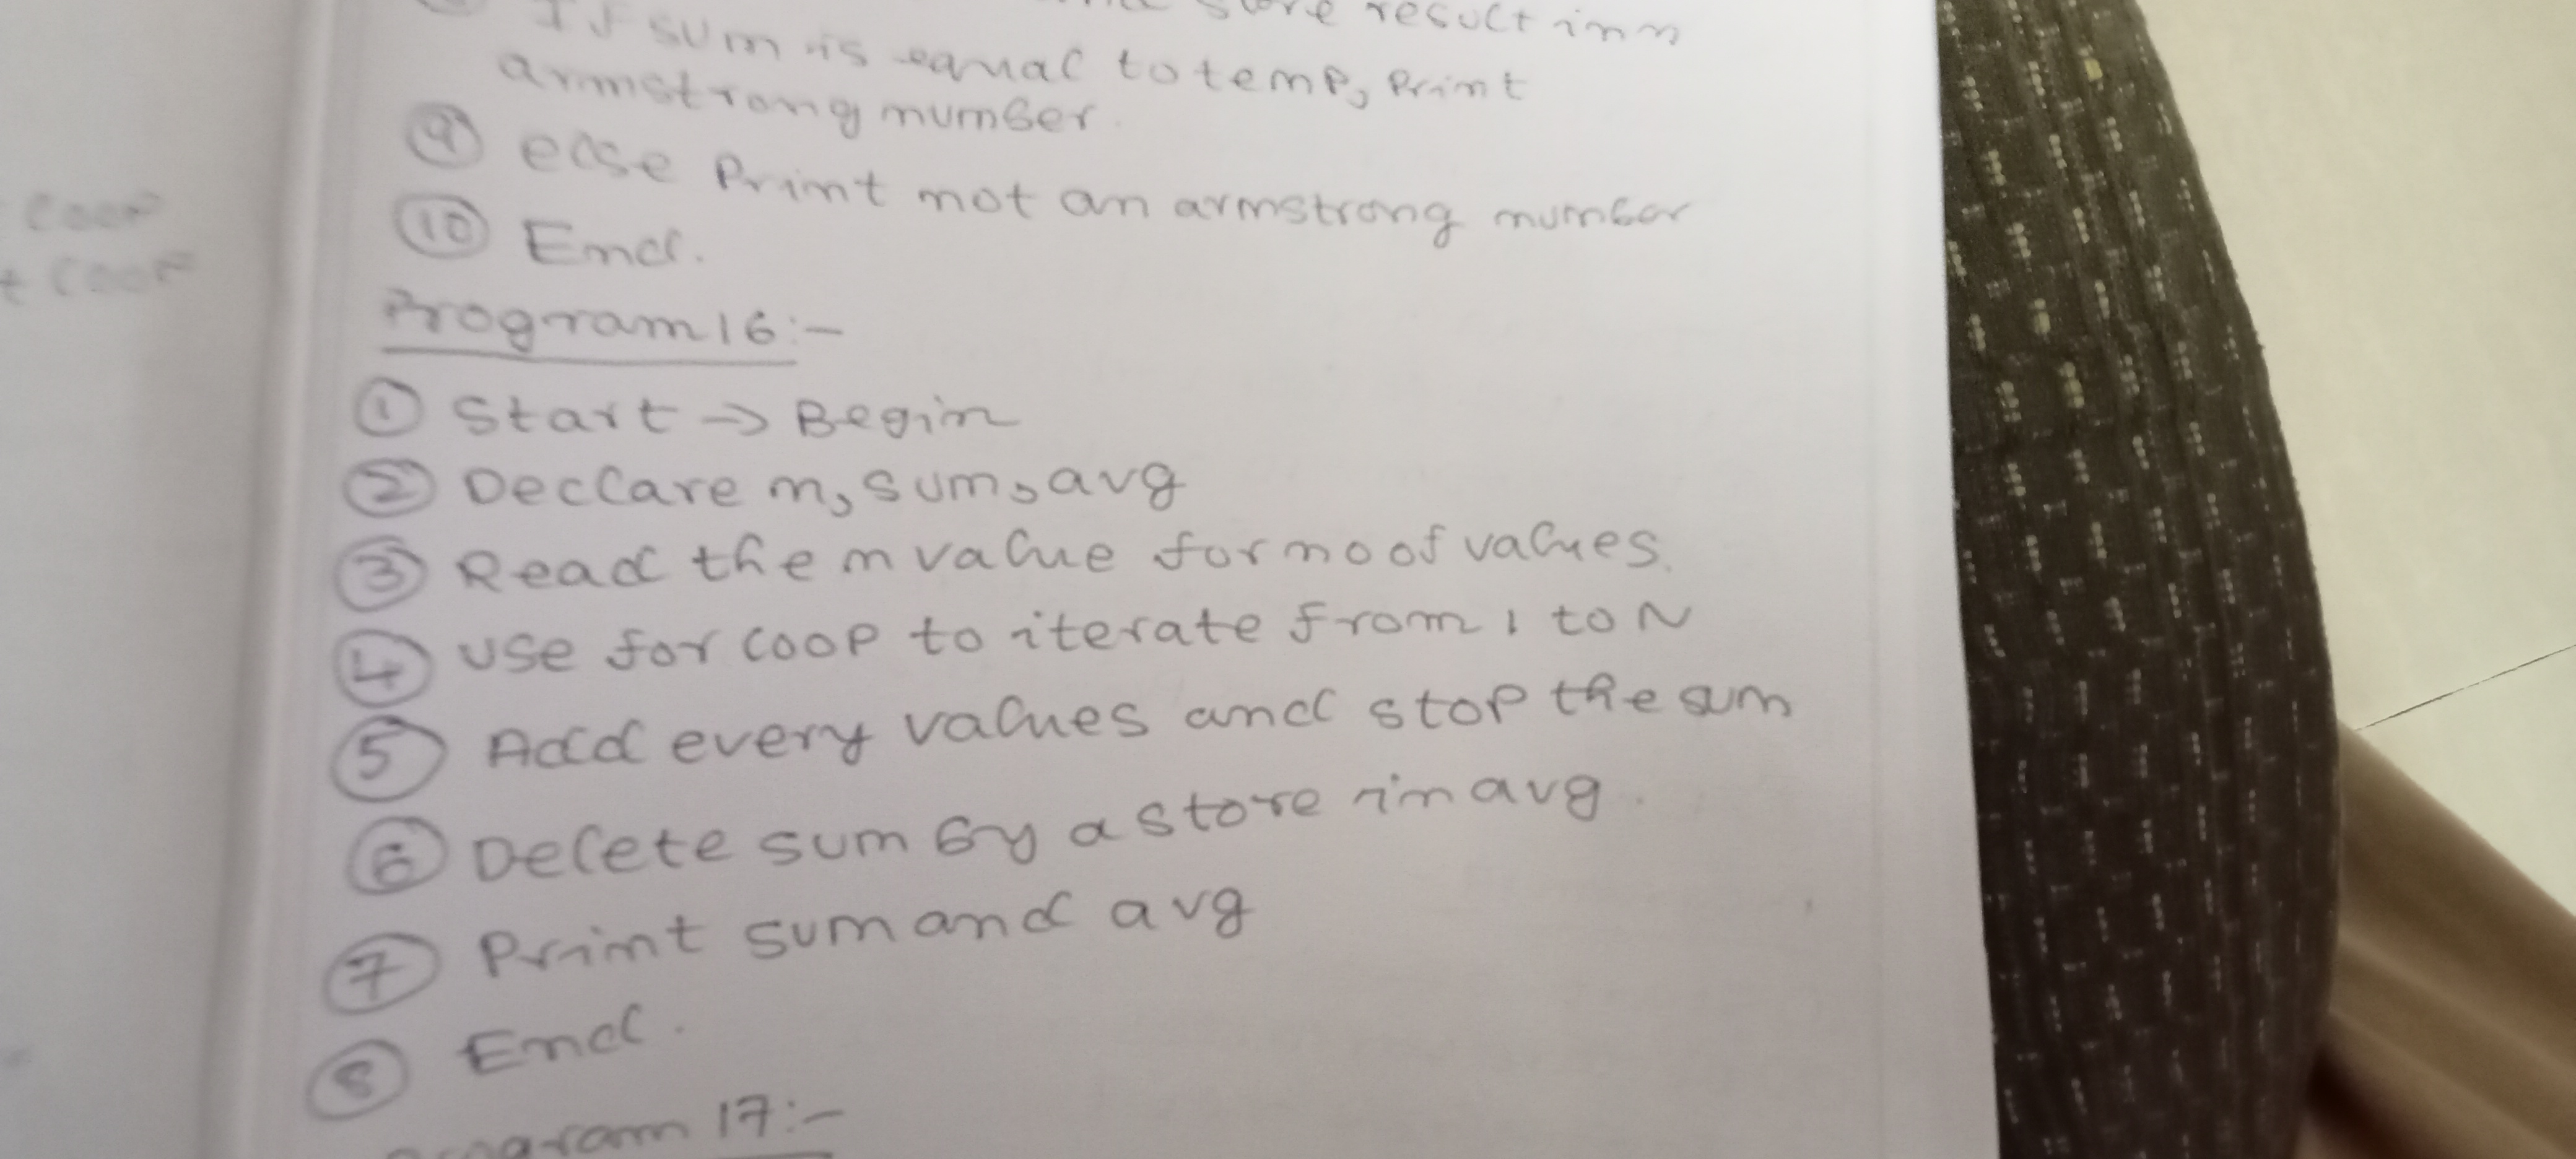 store result in n
If sum is equal to temp, Print
armstrong number.
⑨ else Print not an armstrong number
⑩ End.
Program 16:-
① Start → Begin
② Declare n, sum, avg
③ Read the n value for no of values.
④ use for loop to iterate from 1 to N
⑤ Add every values and stop the sum
⑥ Delete sum by a store in avg.
⑦ Print sum and avg
⑧ End.
Program 17:-
loop
loop